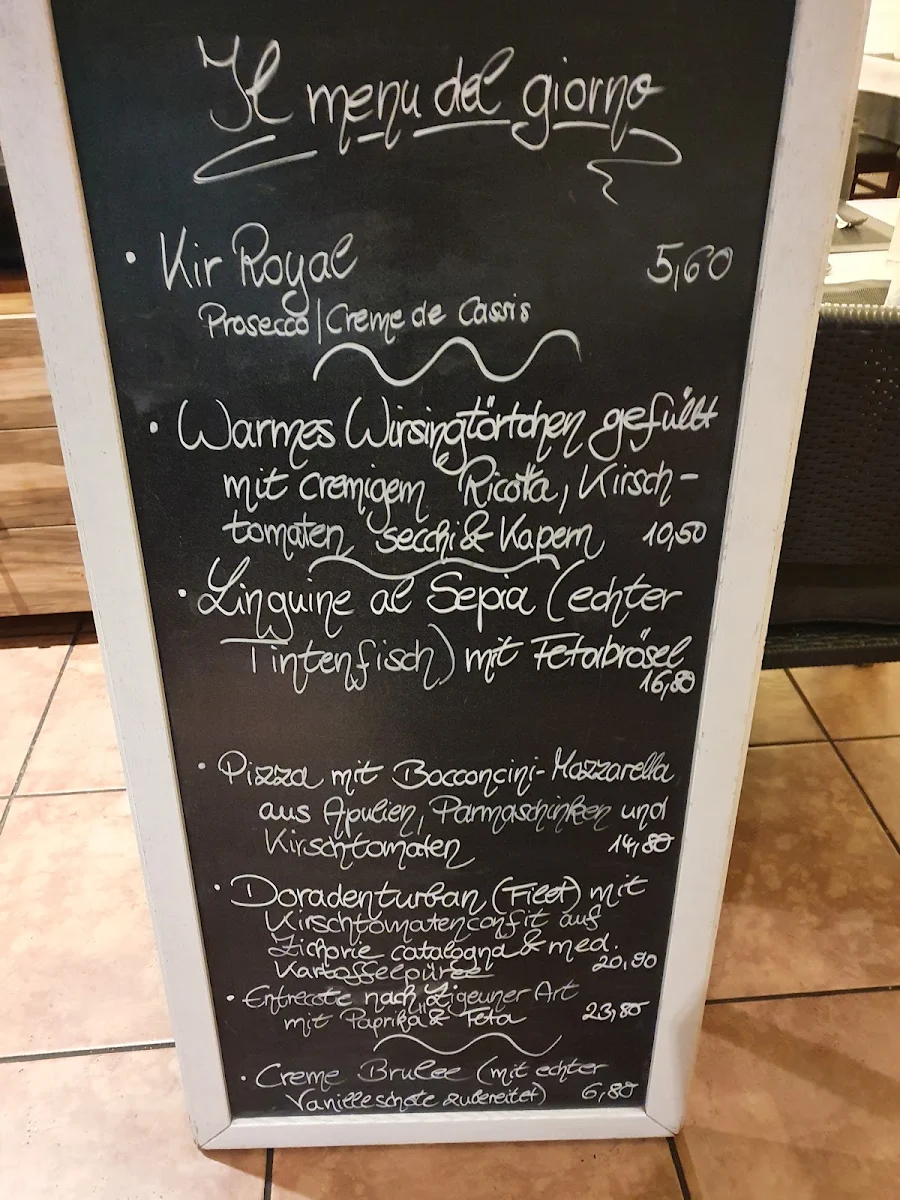 Il menu del giorno
· Kir Royal 5,60
Prosecco|Creme de Cassis
· Warmes Wirsingtörtchen gefüllt
mit cremigem Ricotta, Kirsch-
tomaten secchi & Kapern 10,50
· Linguine al Sepia (echter
Tintenfisch) mit Fetabrösel
16,80
· Pizza mit Bocconcini-Mozzarella
aus Apulien, Parmaschinken und
Kirschtomaten 14,80
· Doradenturban (Filet) mit
Kirschtomatenconfit auf
Zichorie catalogna & med.
Kartoffelpüree 20,90
· Entrecote nach "Zigeuner Art
mit Paprika & Feta 23,80
· Creme Brulee (mit echter
Vanilleschote zubereitet) 6,80